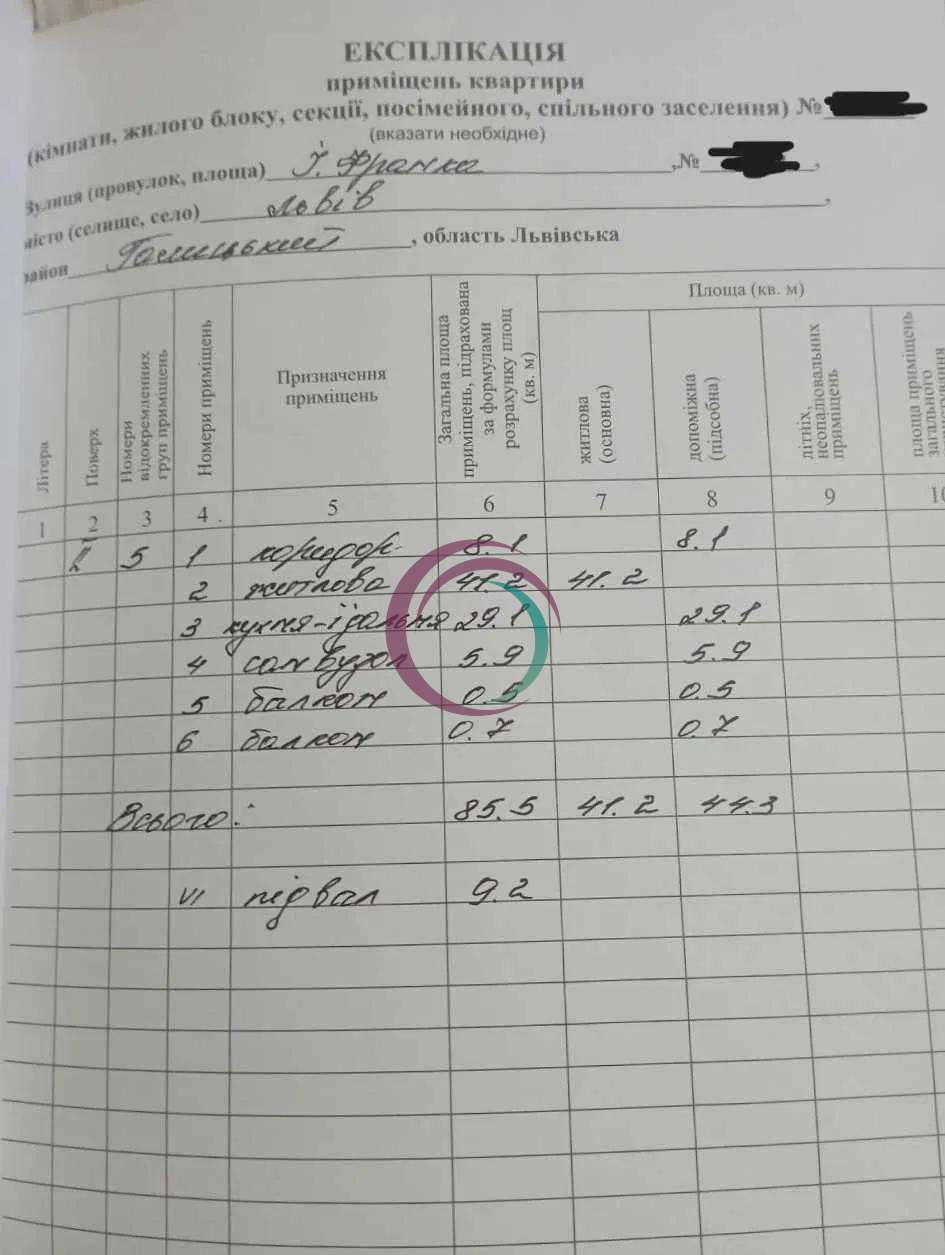 ЕКСПЛІКАЦІЯ
приміщень квартири
(кімнати, жилого блоку, секції, посімейного, спільного заселення) №
(вказати необхідне)
Зулиця (провулок, площа) І. Франка ,№ ,
місто (селище, село) Львів ,
район Галицький , область Львівська
Літера
Поверх
Номери відокремленних груп приміщень
Номери приміщень
Призначення приміщень
Загальна площа приміщень, підрахована за формулами розрахунку площ (кв. м)
Площа (кв. м)
житлова (основна)
допоміжна (підсобна)
літніх, неопалювальних приміщень
площа приміщень загального
1 2 3 4 5 6 7 8 9 10
5 1 коридор 8.1 8.1
2 житлова 41.2 41.2
3 кухня-їдальня 29.1 29.1
4 санвузол 5.9 5.9
5 балкон 0.5 0.5
6 балкон 0.7 0.7
Всього: 85.5 41.2 44.3
VI підвал 9.2